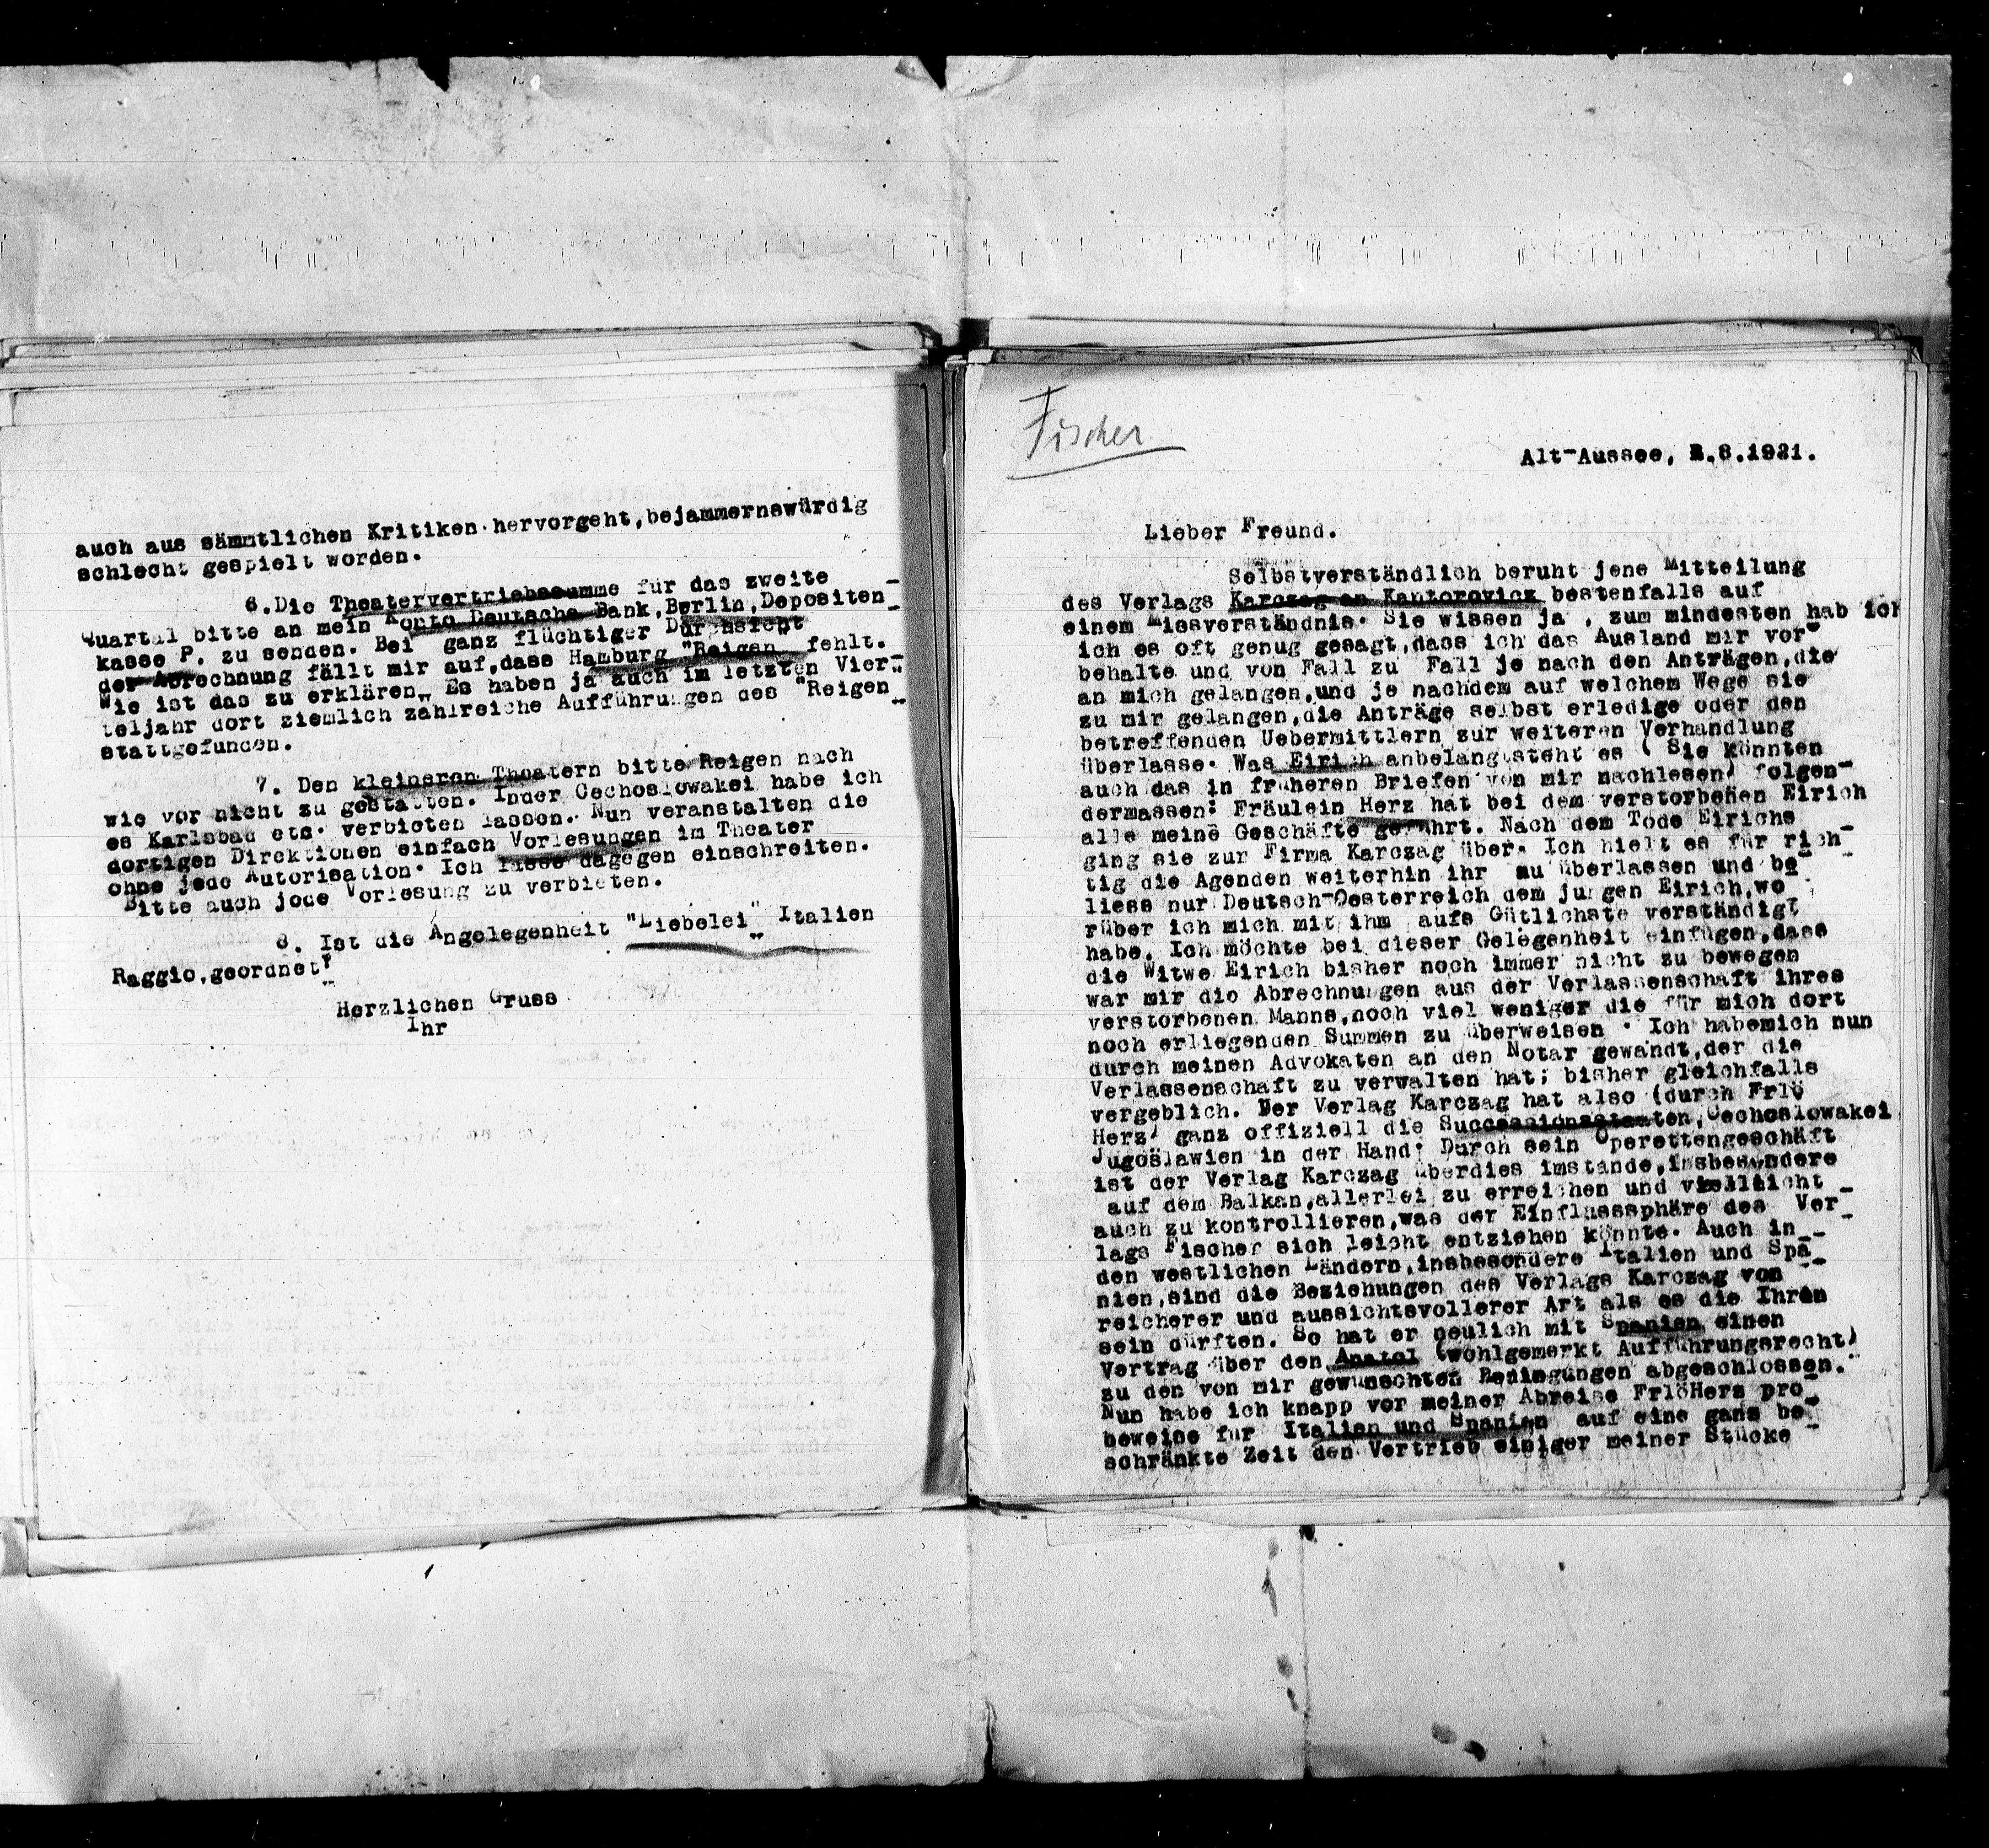 auch aus sämmtlichen Kritiken hervorgeht,bejammernswürdig
schlecht gespielt worden.
6.Die Theatervertriebssumme für das zweite
Quartal bitte an mein Konto Deutsche Bank,Berlin,Depositen_
kasse P. zu senden. Bei ganz flüchtiger Durchsicht
der Abrechnung fällt mir auf,dass Hamburg "Reigen fehlt.
Wie ist das zu erklären" Es haben ja auch im letzten Vier_
teljahr dort ziemlich zahlreiche Aufführungen des "Reigen"
stattgefunden.
7. Den kleineren Theatern bitte Reigen nach
wie vor nicht zu gestatten. Inder Cechoslowakei habe ich
es Karlsbad etc. verbieten lassen. Nun veranstalten die
dortigen Direktionen einfach Vorlesungen im Theater
ohne jede Autorisation. Ich lasse dagegen einschreiten.
Bitte auch jede Vorlesung zu verbieten.
8. Ist die Angelegenheit "Liebelei" Italien
Raggio,geordnet?
Herzlichen Gruss
Ihr
Fischer
Alt-Aussee, 2.8.1921.
Lieber Freund.
Selbstverständlich beruht jene Mitteilung
des Verlags Karczag an Kantorovicz bestenfalls auf
einem Missverständnis. Sie wissen ja , zum mindesten hab ich
ich es oft genug gesagt,dass ich das Ausland mir vor-
behalte und von Fall zu Fall je nach den Anträgen,die
an mich gelangen,und je nachdem auf welchem Wege sie
zu mir gelangen,die Anträge selbst erledige oder den
betreffenden Uebermittlern zur weiteren Verhandlung
überlasse. Was Eirich anbelangt steht es ( Sie könnten
auch das in früheren Briefen von mir nachlesen) folgen-
dermassen: Fräulein Herz hat bei dem verstorbenen Eirich
alle meine Geschäfte geführt. Nach dem Tode Eirichs
ging sie zur Firma Karczag über. Ich hielt es für rich_
tig die Agenden weiterhin ihr zu überlassen und be_
liess nur Deutsch-Oesterreich dem jungen Eirich,wo_
rüber ich mich mit ihm aufs Gütlichste verständigt
habe. Ich möchte bei dieser Gelegenheit einfügen,dass
die Witwe Eirich bisher noch immer nicht zu bewegen
war mir die Abrechnungen aus der Verlassenschaft ihres
verstorbenen Manns,noch viel weniger die für mich dort
noch erliegenden Summen zu überweisen . Ich habemich nun
durch meinen Advokaten an den Notar gewandt,der die
Verlassenschaft zu verwalten hat; bisher gleichfalls
vergeblich. Der Verlag Karczag hat also (durch Frlö
Herz) ganz offiziell die Successionsstaaten,Cechoslowakei
Jugoslawien in der Hand. Durch sein Operettengeschäft
ist der Verlag Karczag überdies imstande,insbesondere
auf dem Balkan,allerlei zu erreichen und vielleicht
auch zu kontrollieren,was der Einflusssphäre des Ver_
lags Fischer sich leicht entziehen könnte. Auch in
den westlichen Ländern,insbesondere Italien und Spa_
nien,sind die Beziehungen des Verlags Karczag von
reicherer und aussichtsvollerer Art als es die Ihren
sein dürften. So hat er neulich mit Spanien einen
Vertrag über den Anatol (wohlgemerkt Aufführungsrecht)
zu den von mir gewünschten Bedingungen abgeschlossen.
Nun habe ich knapp vor meiner Abreise FrlöHerz pro_
beweise für Italien und Spanien auf eine ganz be_
schränkte Zeit den Vertrieb einiger meiner Stücke